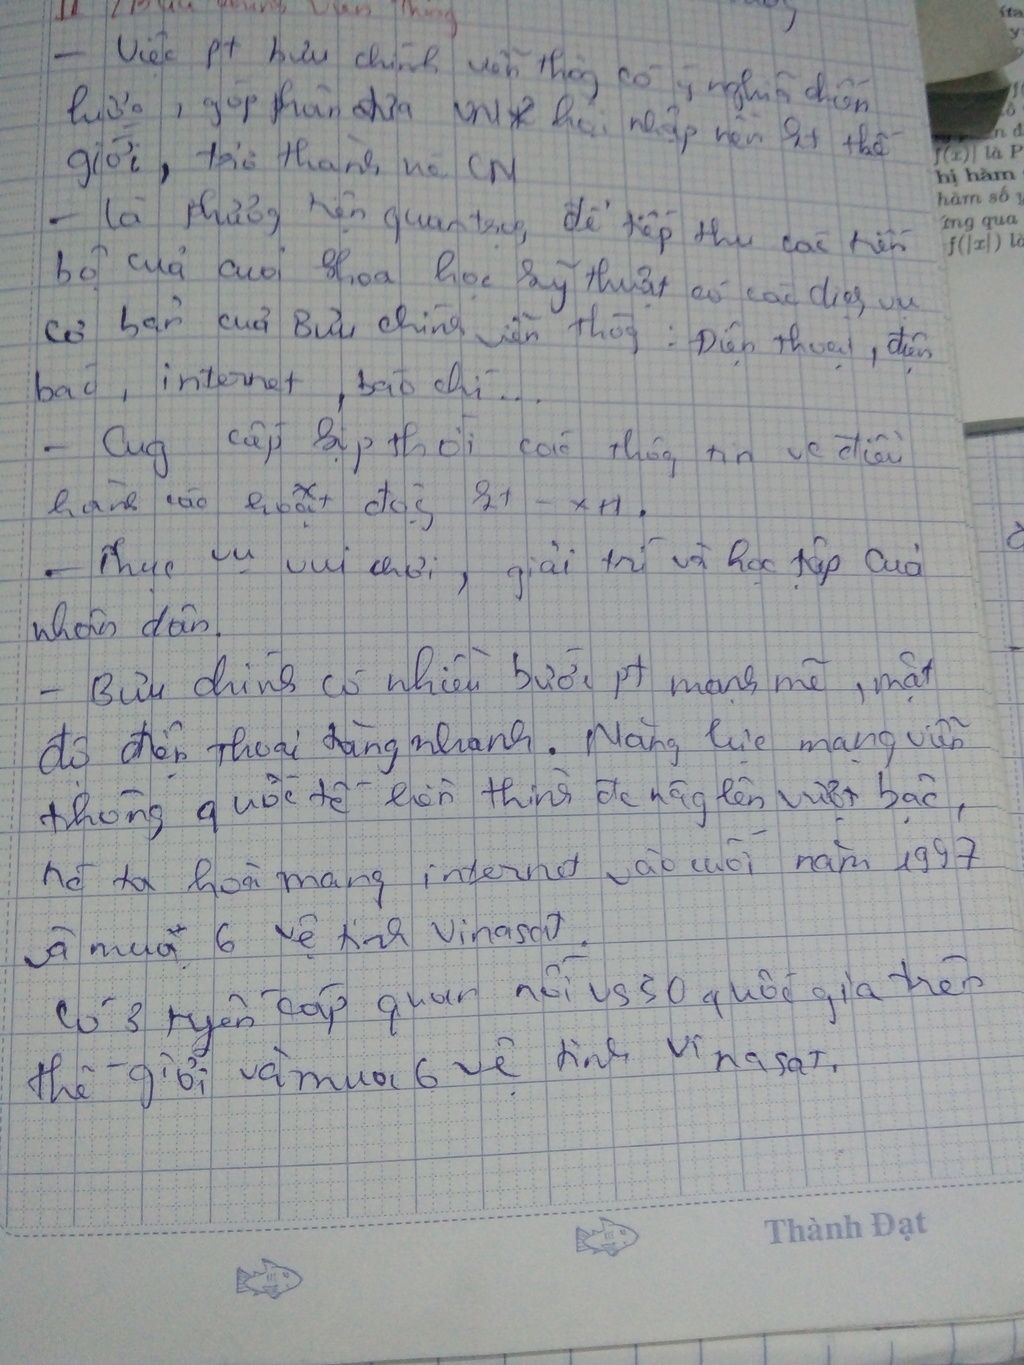 II / Bưu chính viễn thông
- Việc pt bưu chính viễn thôg có ý nghĩa chiến
lược, góp phần đưa VN hội nhập nền kt thế
giới, trở thành nc CN
- Là phương tiện quan trọg để tiếp thu các tiến
bộ của cuộc khoa học kỹ thuật có các dịch vụ
cơ bản của Bưu chính viễn thôg : Điện thoại, điện
báo, internet, báo chí...
- Cug cấp kịp thời các thôg tin về điều
hành các hoạt độg kt - xh.
- Phục vụ vui chơi, giải trí và học tập của
nhân dân.
- Bưu chính có nhiều bước pt mạnh mẽ, mật
độ điện thoại tăng nhanh. Năng lực mạng viễn
thông quốc tế liên thình đc nâg lên vượt bậc,
nc ta hoà mạng internet vào cuối năm 1997
và mua 6 vệ tinh Vinasat.
Có 3 tuyến cáp quan nối vs 30 quốc gia trên
thế giới và mua 6 vệ tinh Vinasat.
Thành Đạt
f(x)| là P
hị hàm
hàm số y
ứng qua
f(|x|) là